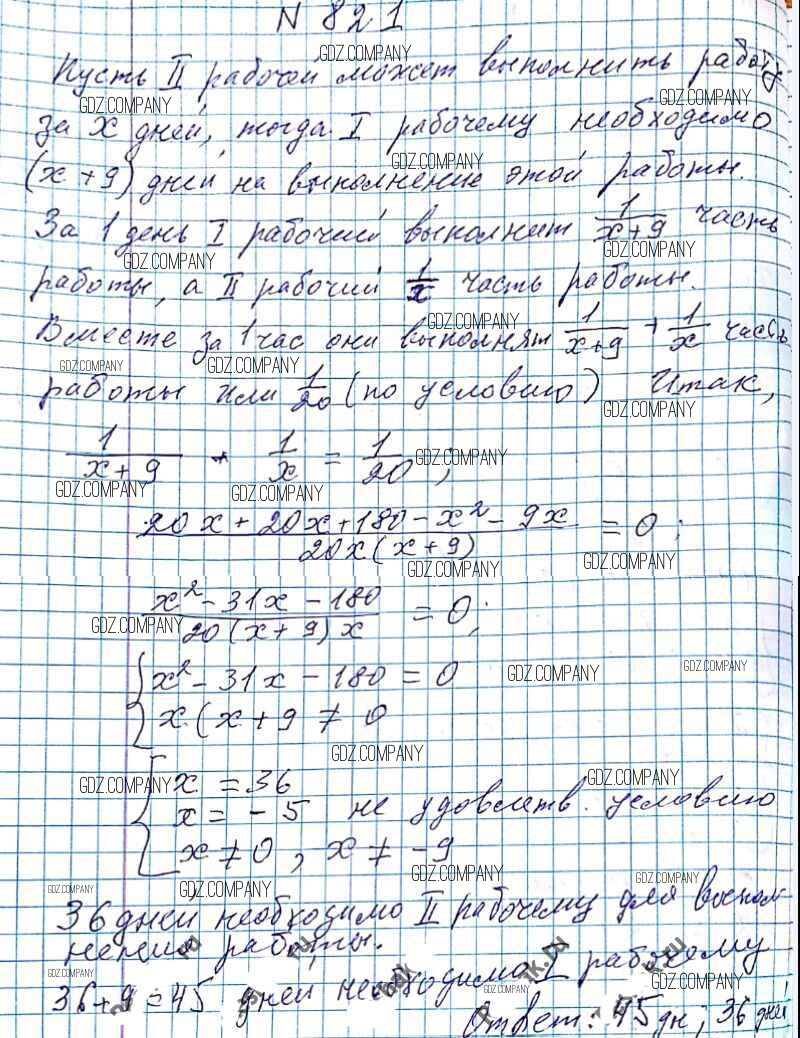 N 821
Пусть II рабочий может выполнить работу
за x дней, тогда I рабочему необходимо
(x+9) дней на выполнение этой работы.
За 1 день I рабочий выполнит 1/(x+9) часть
работы, а II рабочий 1/x часть работы.
Вместе за 1 час они выполнят 1/(x+9) + 1/x часть
работы или 1/20 (по условию) Итак,
1/(x+9) + 1/x = 1/20 ;
(20x + 20x + 180 - x² - 9x)/(20x(x+9)) = 0 ;
(x² - 31x - 180)/(20(x+9)x) = 0 ;
{ x² - 31x - 180 = 0
x (x + 9 ≠ 0
[ x = 36
{ x = - 5 не удовлетв. условию
x ≠ 0 , x ≠ -9
36 дней необходимо II рабочему для выпол
нения работы.
36+9=45 дней необходимо I рабочему
Ответ: 45 дн; 36 дней
GDZ.COMPANY